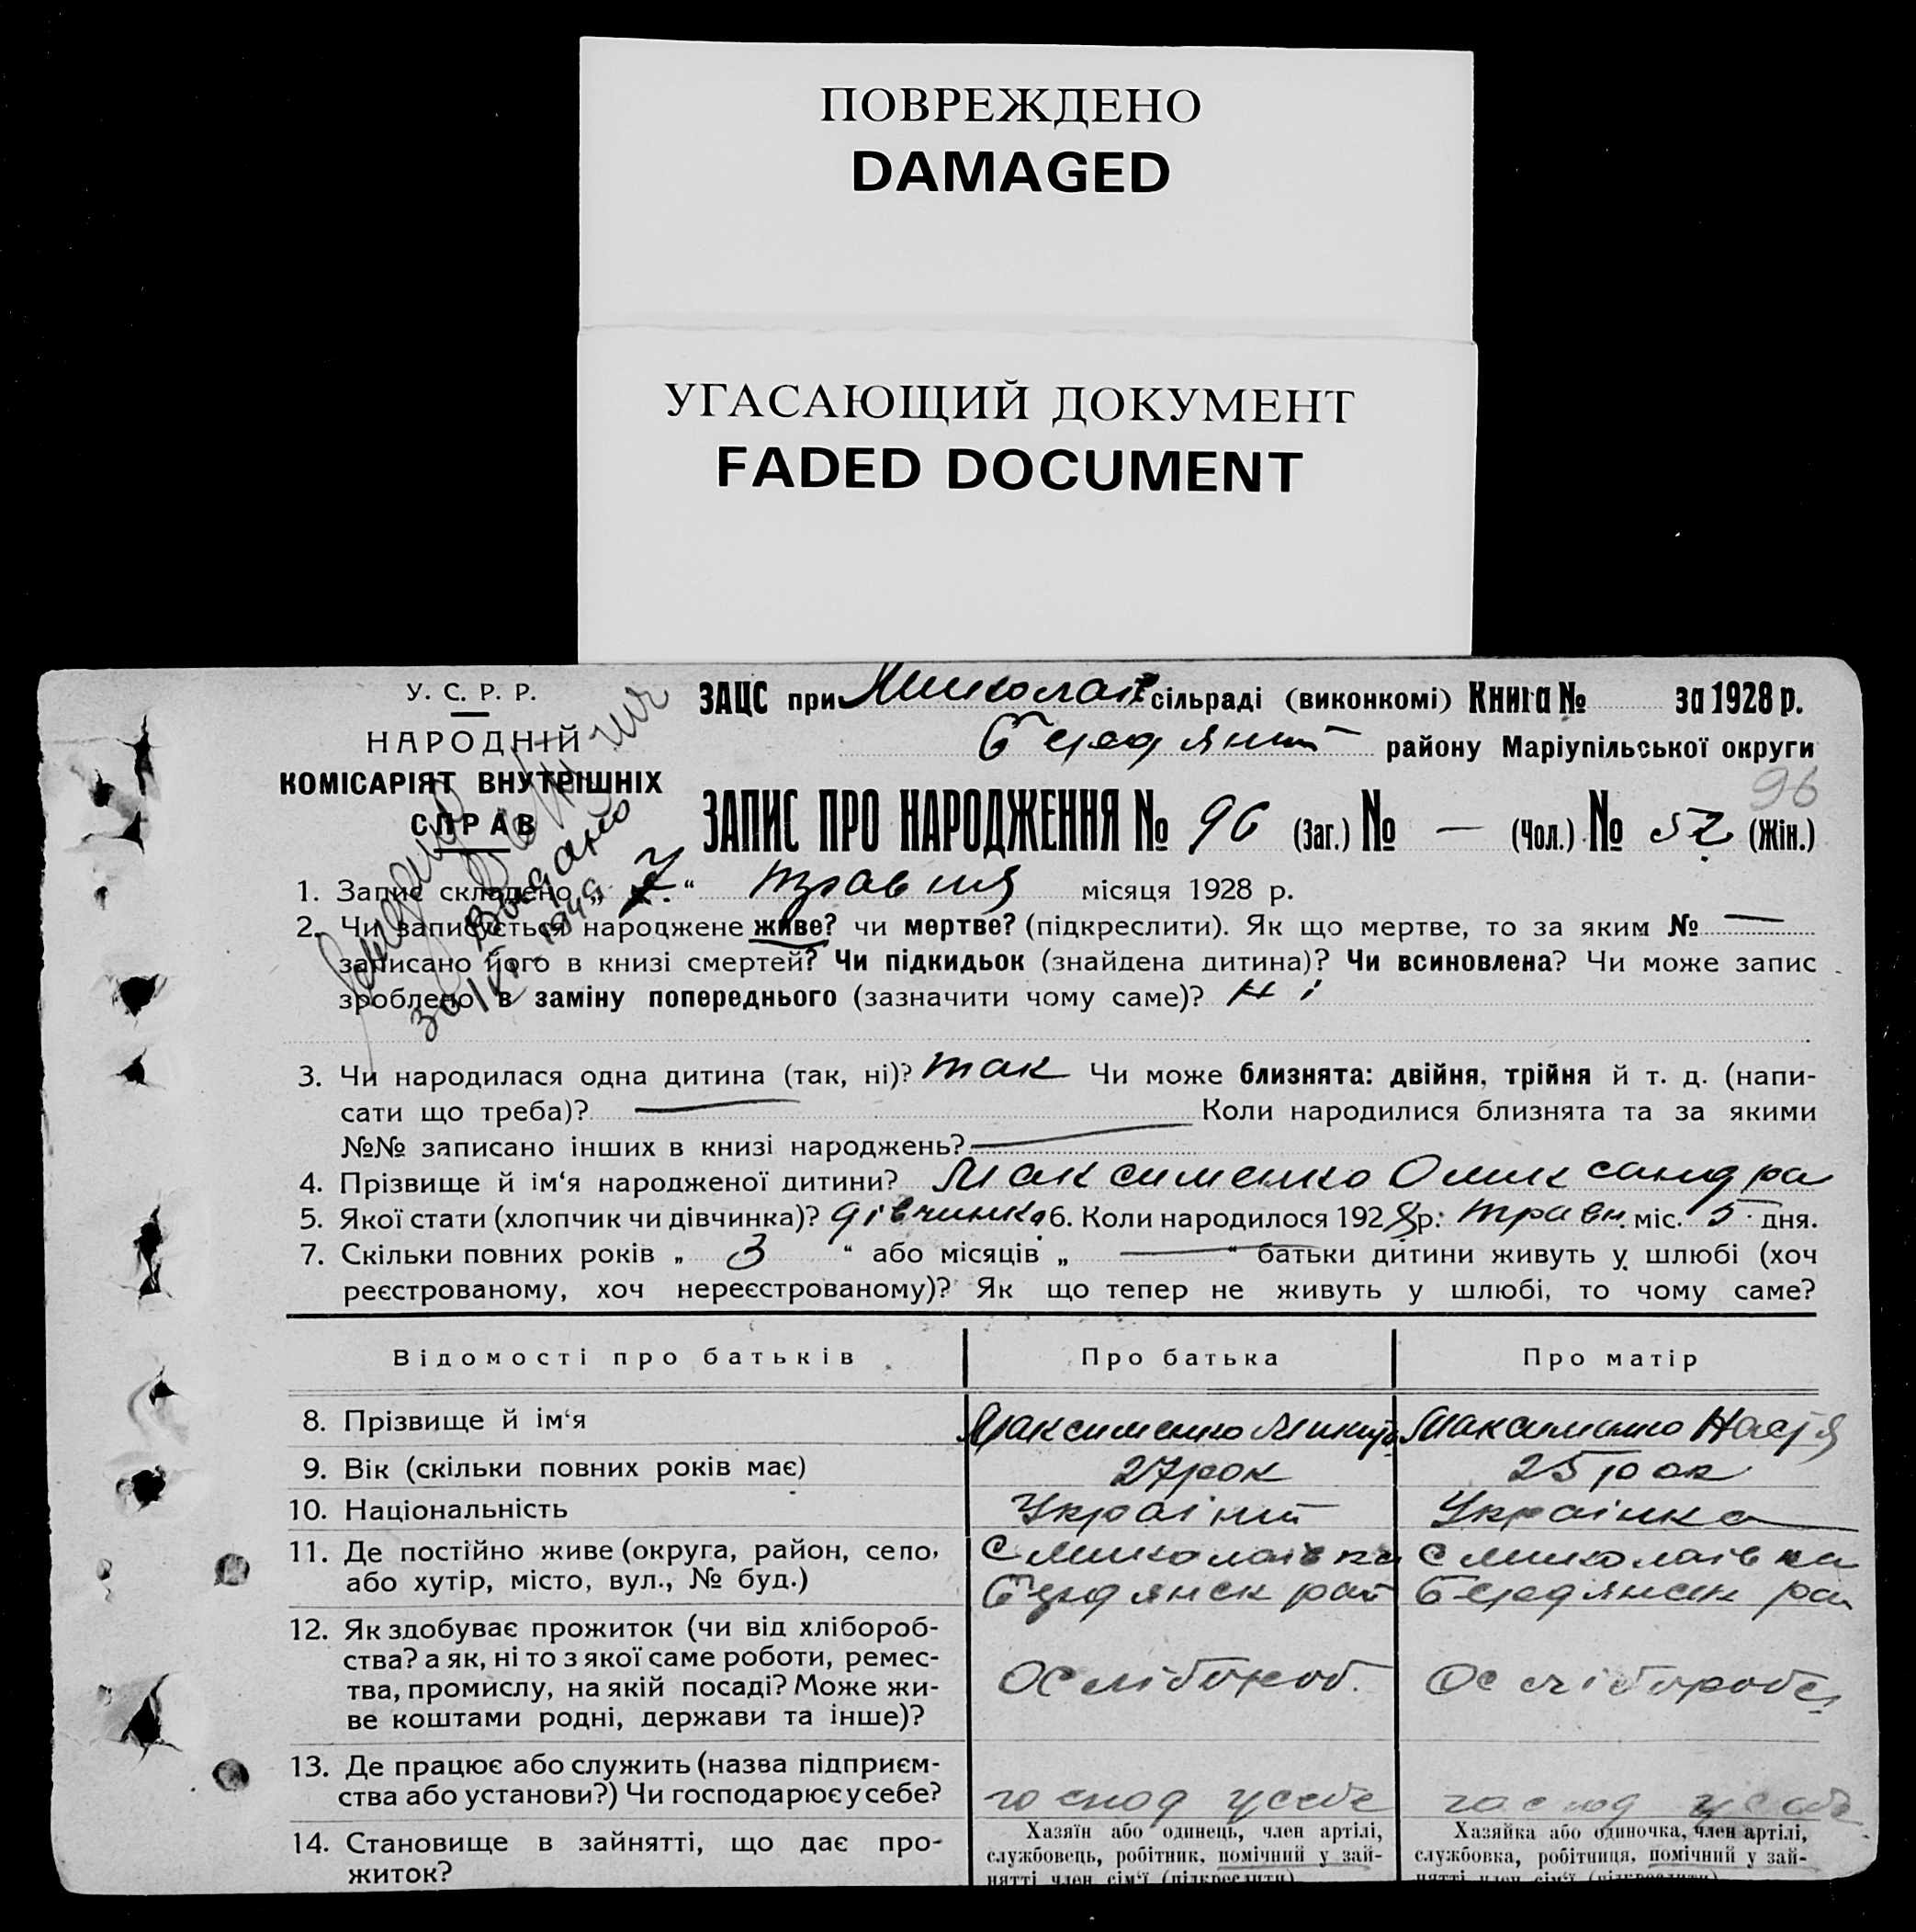 ПОВРЕЖДЕНО
DAMAGED
УГАСАЮЩИЙ ДОКУМЕНТ
FADED DOCUMENT
У. С. Р. Р.
НАРОДНІЙ
КОМІСАРІЯТ ВНУТРІШНІХ
СПРАВ
ЗАЦС при Миколаїв сільраді (виконкомі) Книга № за 1928 р.
Бердянськ району Маріупільської округи
96
ЗАПИС ПРО НАРОДЖЕННЯ № 96 (Заг.) № — (Чол.) № 52 (Жін.)
Видано
1. Запис складено „ 7 “ травня місяця 1928 р.
2. Чи записується народжене живе? чи мертве? (підкреслити). Як що мертве, то за яким № —
записано його в книзі смертей? Чи підкидьок (знайдена дитина)? Чи всиновлена? Чи може запис
зроблено в заміну попереднього (зазначити чому саме)? Ні
3. Чи народилася одна дитина (так, ні)? так Чи може близнята: двійня, трійня й т. д. (напи-
сати що треба)? — Коли народилися близнята та за якими
№№ записано інших в книзі народжень? —
4. Прізвище й ім‘я народженої дитини? Максименко Оликсандра
5. Якої стати (хлопчик чи дівчинка)? дівчинка 6. Коли народилося 1928 р. травн. міс. 5 дня.
7. Скільки повних років „ 3 “ або місяців „ — “ батьки дитини живуть у шлюбі (хоч
реєстрованому, хоч нереєстрованому)? Як що тепер не живуть у шлюбі, то чому саме?
Відомості про батьків Про батька Про матір
8. Прізвище й ім‘я Максименко Микита Максименко Настя
9. Вік (скільки повних років має) 27 рок 25 рок
10. Національність Україн Українка
11. Де постійно живе (округа, район, село, С Миколаівка С Миколаівка
або хутір, місто, вул., № буд.) Бердянск рай Бердянськ рай
12. Як здобуває прожиток (чи від хлібороб-
ства? а як, ні то з якої саме роботи, ремес-
тва, промислу, на якій посаді? Може жи-
ве коштами родні, держави та інше)?
13. Де працює або служить (назва підприєм-
ства або установи?) Чи господарює у себе? господ у себе господ у себе
14. Становище в зайнятті, що дає про-
житок?
Хазяїн або одинець, член артілі,
службовець, робітник, помічний у зай-
нятті член сім‘ї (підкреслити)
Хазяйка або одиночка, член артілі,
службовка, робітниця, помічний у зай-
нятті член сім‘ї (підкреслити)